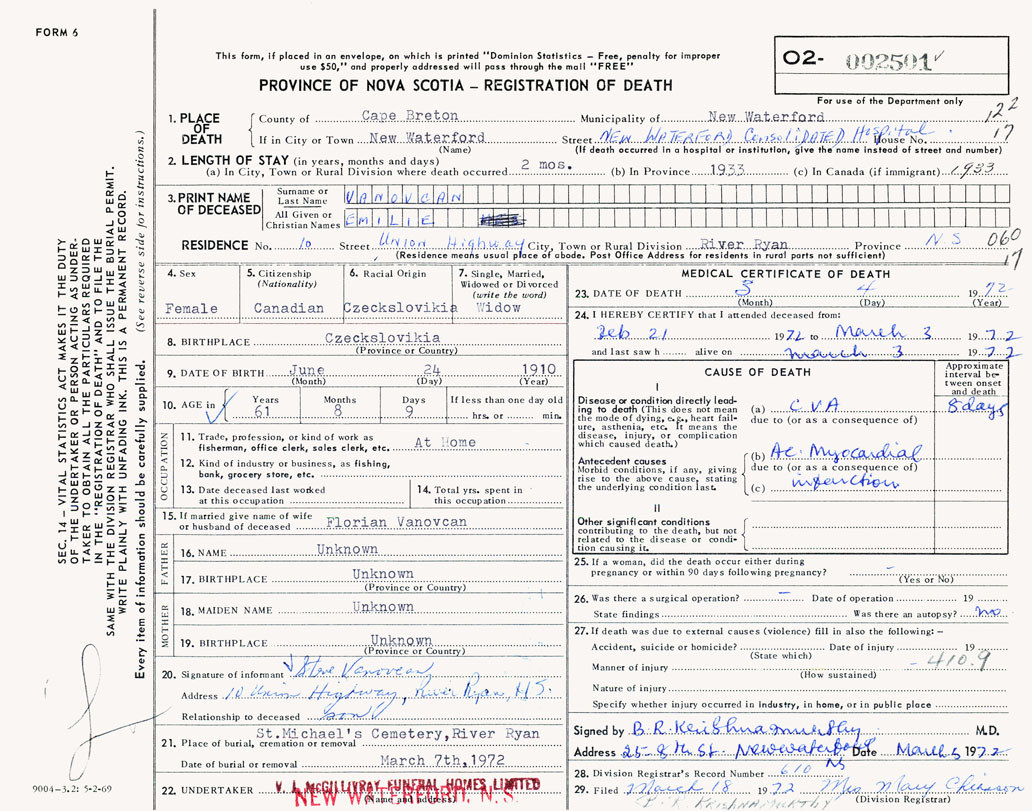 FORM 6
This form, if placed in an envelope, on which is printed "Dominion Statistics – Free, penalty for improper
use $50," and properly addressed will pass through the mail "FREE"
O2- 002501
For use of the Department only
PROVINCE OF NOVA SCOTIA – REGISTRATION OF DEATH
122
17
1. PLACE OF DEATH
County of Cape Breton Municipality of New Waterford
If in City or Town New Waterford Street NEW WATERFORD Consolidated Hospital House No.
(Name) (If death occurred in a hospital or institution, give the name instead of street and number)
2. LENGTH OF STAY (in years, months and days)
(a) In City, Town or Rural Division where death occurred 2 mos. (b) In Province 1933 (c) In Canada (if immigrant) 1933
3. PRINT NAME OF DECEASED
Surname or Last Name VANOVCAN
All Given or Christian Names EMILIE
RESIDENCE No. 10 Street Union Highway City, Town or Rural Division River Ryan Province N S
060
17
(Residence means usual place of abode. Post Office Address for residents in rural parts not sufficient)
4. Sex
Female
5. Citizenship
(Nationality)
Canadian
6. Racial Origin
Czeckslovikia
7. Single, Married,
Widowed or Divorced
(write the word)
Widow
8. BIRTHPLACE Czeckslovikia
(Province or Country)
9. DATE OF BIRTH June 24 1910
(Month) (Day) (Year)
10. AGE in
Years Months Days If less than one day old
61 8 9 hrs. or min.
OCCUPATION
11. Trade, profession, or kind of work as
fisherman, office clerk, sales clerk, etc. At Home
12. Kind of industry or business, as fishing,
bank, grocery store, etc.
13. Date deceased last worked
at this occupation
14. Total yrs. spent in
this occupation
15. If married give name of wife
or husband of deceased Florian Vanovcan
FATHER
16. NAME Unknown
17. BIRTHPLACE Unknown
(Province or Country)
MOTHER
18. MAIDEN NAME Unknown
19. BIRTHPLACE Unknown
(Province or Country)
20. Signature of informant Steve Vanovcan
Address 10 Union Highway, River Ryan, N.S.
Relationship to deceased son
21. Place of burial, cremation or removal St.Michael's Cemetery,River Ryan
Date of burial or removal March 7th,1972
22. UNDERTAKER V. J. McGILLIVRAY FUNERAL HOMES LIMITED
NEW WATERFORD, N. S.
(Name and address)
MEDICAL CERTIFICATE OF DEATH
23. DATE OF DEATH 3 4 1972
(Month) (Day) (Year)
24. I HEREBY CERTIFY that I attended deceased from:
Feb 21 1972 to March 3 1972
and last saw h alive on march 3 1972
CAUSE OF DEATH
Approximate
interval be-
tween onset
and death
I
Disease or condition directly lead-
ing to death (This does not mean
the mode of dying, e.g., heart fail-
ure, asthenia, etc. It means the
disease, injury, or complication
which caused death.)
(a) CVA 8 days
due to (or as a consequence of)
Antecedent causes
Morbid conditions, if any, giving
rise to the above cause, stating
the underlying condition last.
(b) Ac. Myocardial
due to (or as a consequence of)
(c) infarction
II
Other significant conditions
contributing to the death, but not
related to the disease or condi-
tion causing it.
25. If a woman, did the death occur either during
pregnancy or within 90 days following pregnancy? –
(Yes or No)
26. Was there a surgical operation? – Date of operation 19
State findings Was there an autopsy? no
27. If death was due to external causes (violence) fill in also the following: –
Accident, suicide or homicide? Date of injury 19
(State which)
-410.9
Manner of injury
(How sustained)
Nature of injury
Specify whether injury occurred in industry, in home, or in public place
Signed by B.R. Krishnamurthy M.D.
Address 25-8th St. Newwaterford NS Date March 5 1972
28. Division Registrar's Record Number 610
29. Filed March 18 1972 Mrs Mary
(Division Registrar)
B. R. KRISHNAMURTHY
SEC. 14 – VITAL STATISTICS ACT MAKES IT THE DUTY
OF THE UNDERTAKER OR PERSON ACTING AS UNDER-
TAKER TO OBTAIN ALL THE PARTICULARS REQUIRED
IN THE "REGISTRATION OF DEATH" AND TO FILE THE
SAME WITH THE DIVISION REGISTRAR WHO SHALL ISSUE THE BURIAL PERMIT.
WRITE PLAINLY WITH UNFADING INK. THIS IS A PERMANENT RECORD.
Every item of information should be carefully supplied. (See reverse side for instructions.)
9004–3.2: 5-2-69